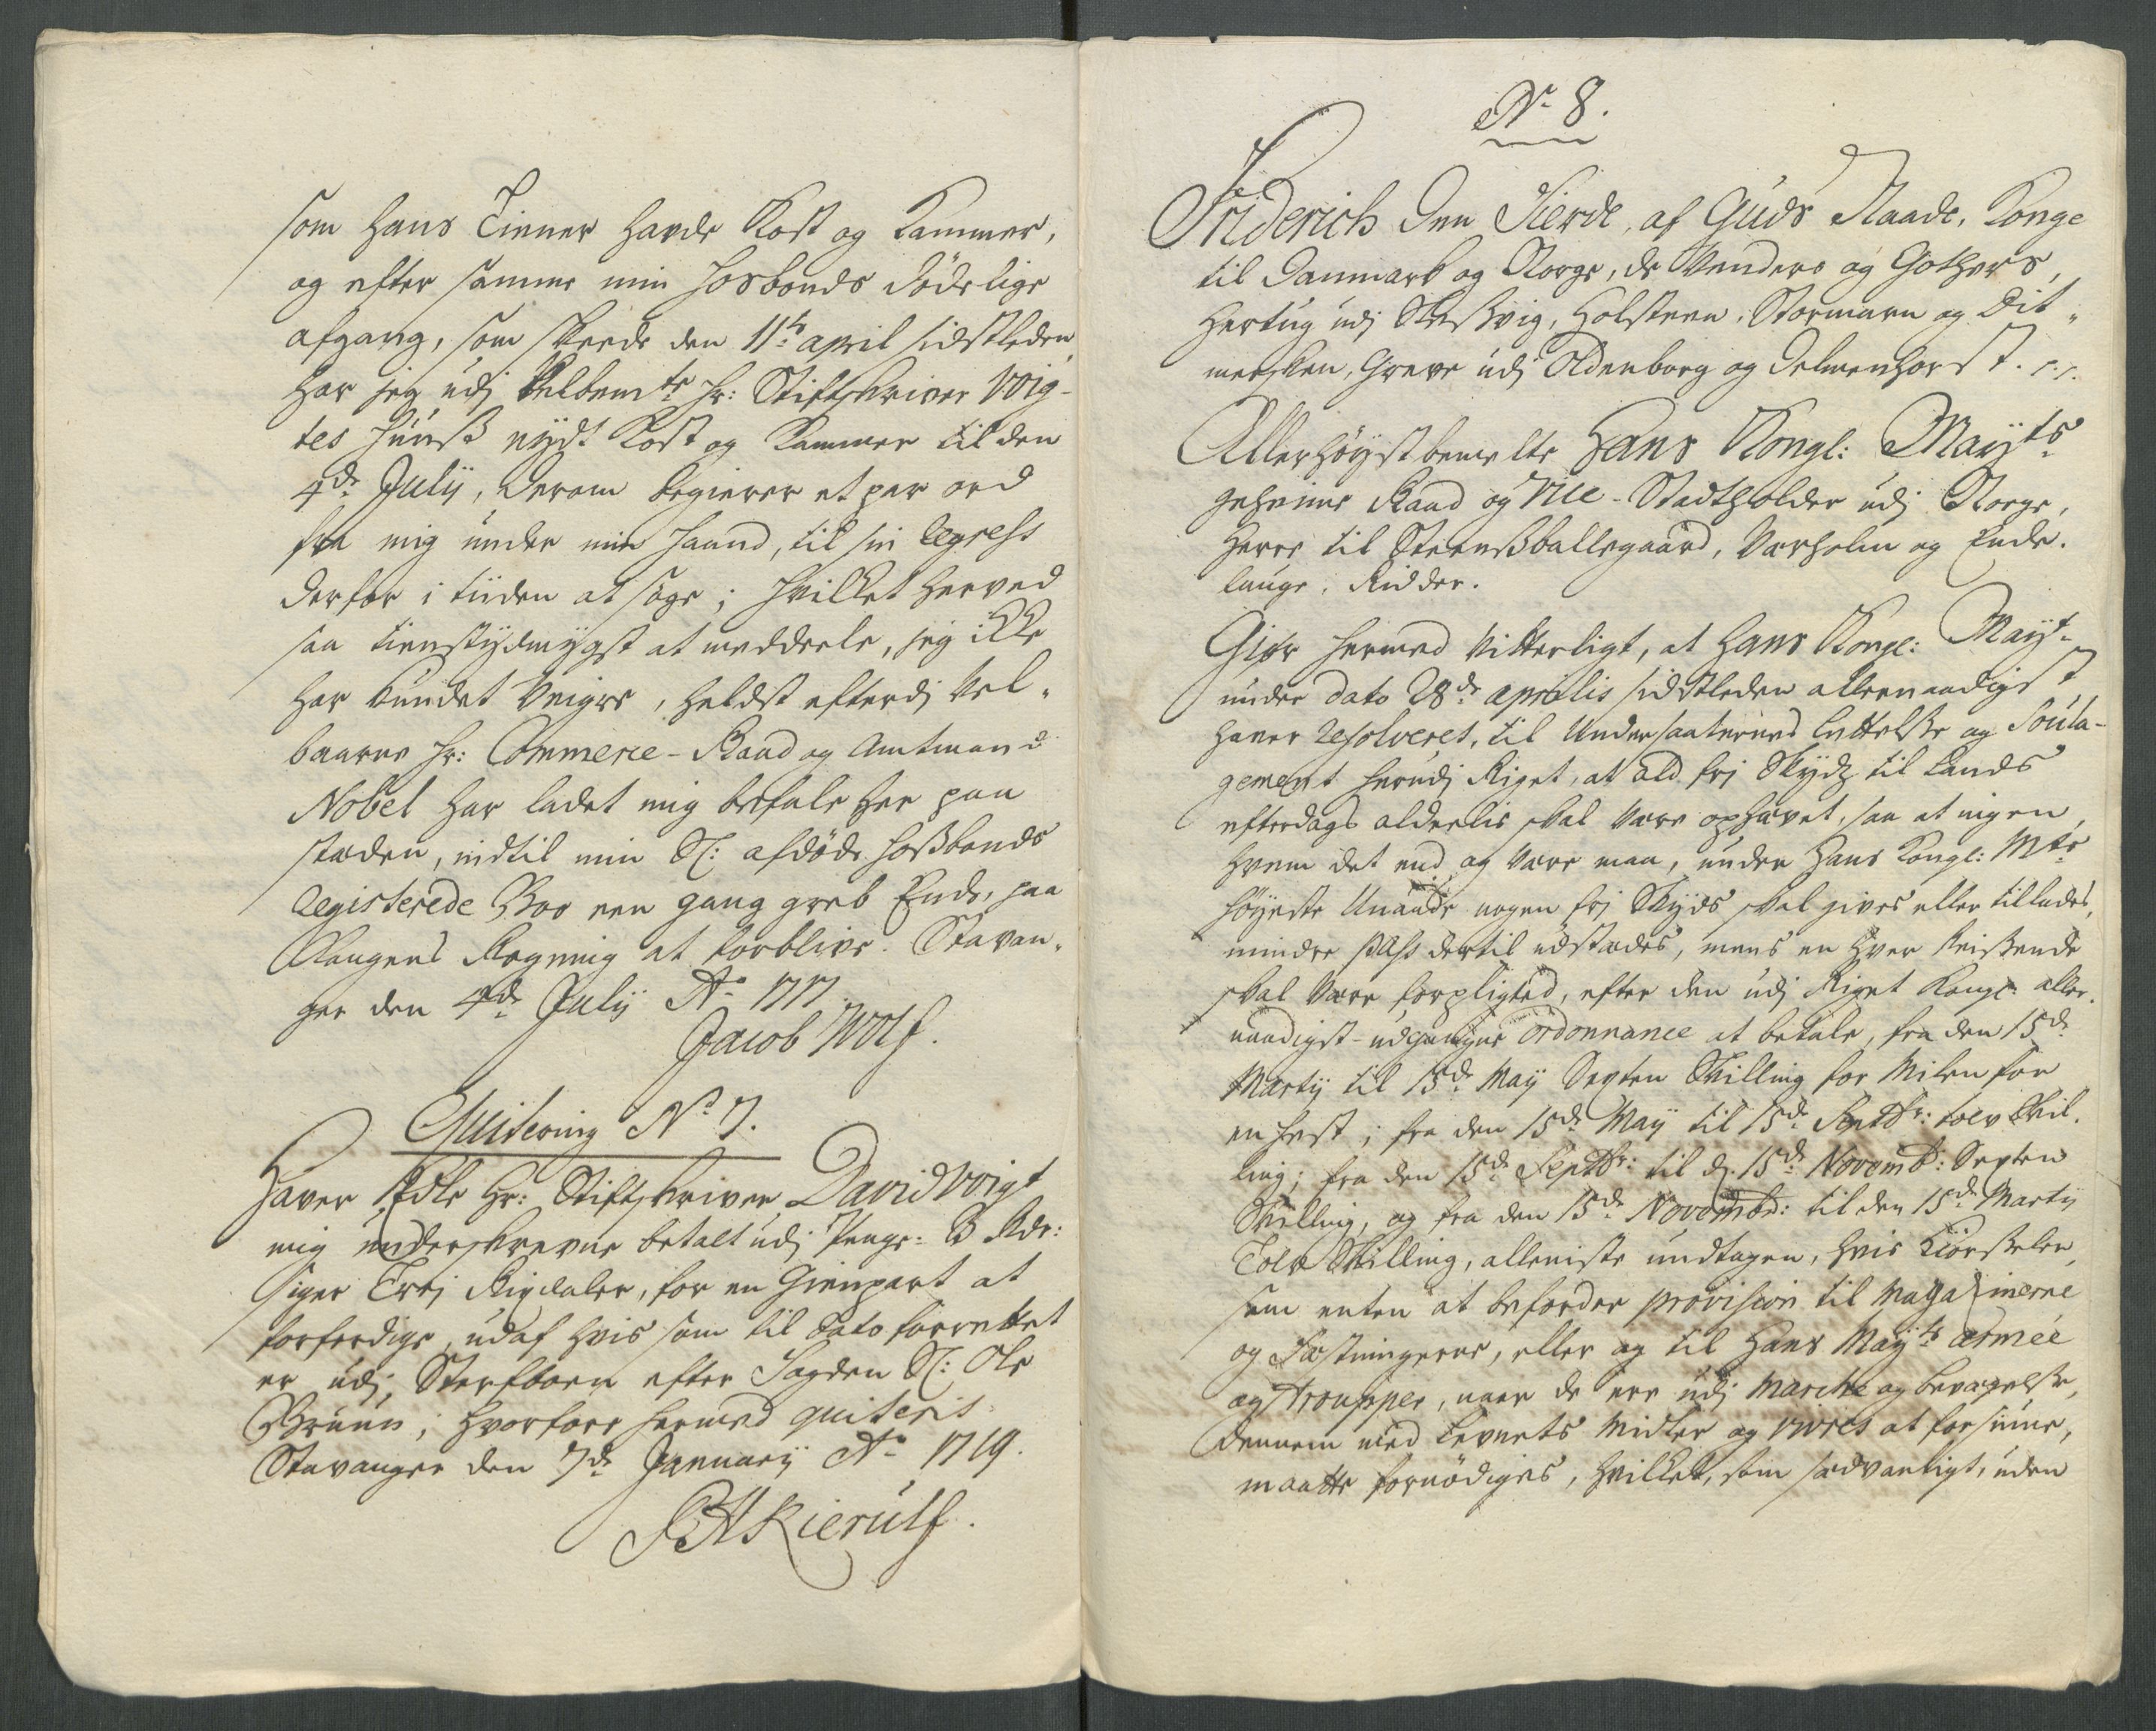 som hans Tienner hafde Kost og Kammer,
og efter samme min Hosbonds dødelige
afgang, som skeede den 11te april sidstleden,
har jeg udj Velbemte Hr: Stiftskriver Voig-
tes Huuss nydt Kost og Kammer til den
4de Julij, derom begierer et par ord
fra mig under min Haand, til sin Regress
derfor i tiiden at søge; Hvilket herved
saa tienstydmygst at meddeele, jeg ikke
har kundet Veigre, heldst efterdj Vel-
baarne Hr: Commerce-Raad og Amtmand
Nobel har ladet mig befale her paa
stæden, indtil min Sl: afdøde Hossbonds
Registerede Boe een gang greb Ende, paa
Kongens Regning at forblive. Stavan-
ger den 4de Julij Ao 1717.
Jacob Wolf.
Quitering No 7.
Haver Edle Hr: Stiftskriver David Voigt
mig underskrevne betalt udj Penge: 3 Rdr:
siger Trej Rixdaler, for en Gienpart at
forferdige, udaf hvis som til dato forrettet
er udj Sterfboen efter Fogden Sl: Ole
Bruun; hvorfore hermed quiteris
Stavanger den 7de January Ao 1719.
SA Kierulf.
No 8.
Friderich den Fierde, af Guds Naade, Konge
til Danmark og Norge, de Venders og Gothers,
Hertug udj Slessvig, Holsteen, Stormarn og Dit-
mersken, Greve udj Oldenborg og Delmenhorst. r. r.
Allerhøystbemelte Hans Kongl: Mayts
geheime Raad og Vice-Stadtholder udj Norge,
Herre til Steenssballegaard, Værholm og Ende-
lauge, Ridder.
Giør hermed Vitterligt, at Hans Kongl: Mayt
under dato 28de aprilis sidstleden allernaadigst
haver resolveret, til Undersaaternes Lettelsse og Soula-
gement herudj Riget, at ald frj Skydz til Lands
efterdags alderlis skal være ophævet, saa at ingen,
hvem det end og være maa, under Hans Kongl: Mts
høyeste Unaade nogen frj Skyds skal gives eller tillades,
mindre Pass dertil udstædes, mens en hver Reissende
skal være forpligted, efter den udj Riget Kongl: aller-
naadigst-udgangne ordonnance at betale, fra den 15de
Martij til 15de Maij Sexten Skilling for Milen for
en hest; fra den 15de Maij til 15de Septbr: tolv Skil-
ling; fra den 15de Septbr: til d. 15de Novemb: Sexten
Skilling, og fra den 15de Novembr: til den 15de Martij
Tolv Skilling, alleniste undtagen, hvis Kiørsseler,
som enten at befordre provision til Magazinerne
og Fæstningerne, eller og til Hans Mayts armée
og Troupper, naar de ere udj Marche og bevægelsse,
dennem med Levnets Midler og vivres at forsiune,
maatte fornødiges, hvilket, som sædvanligt, uden